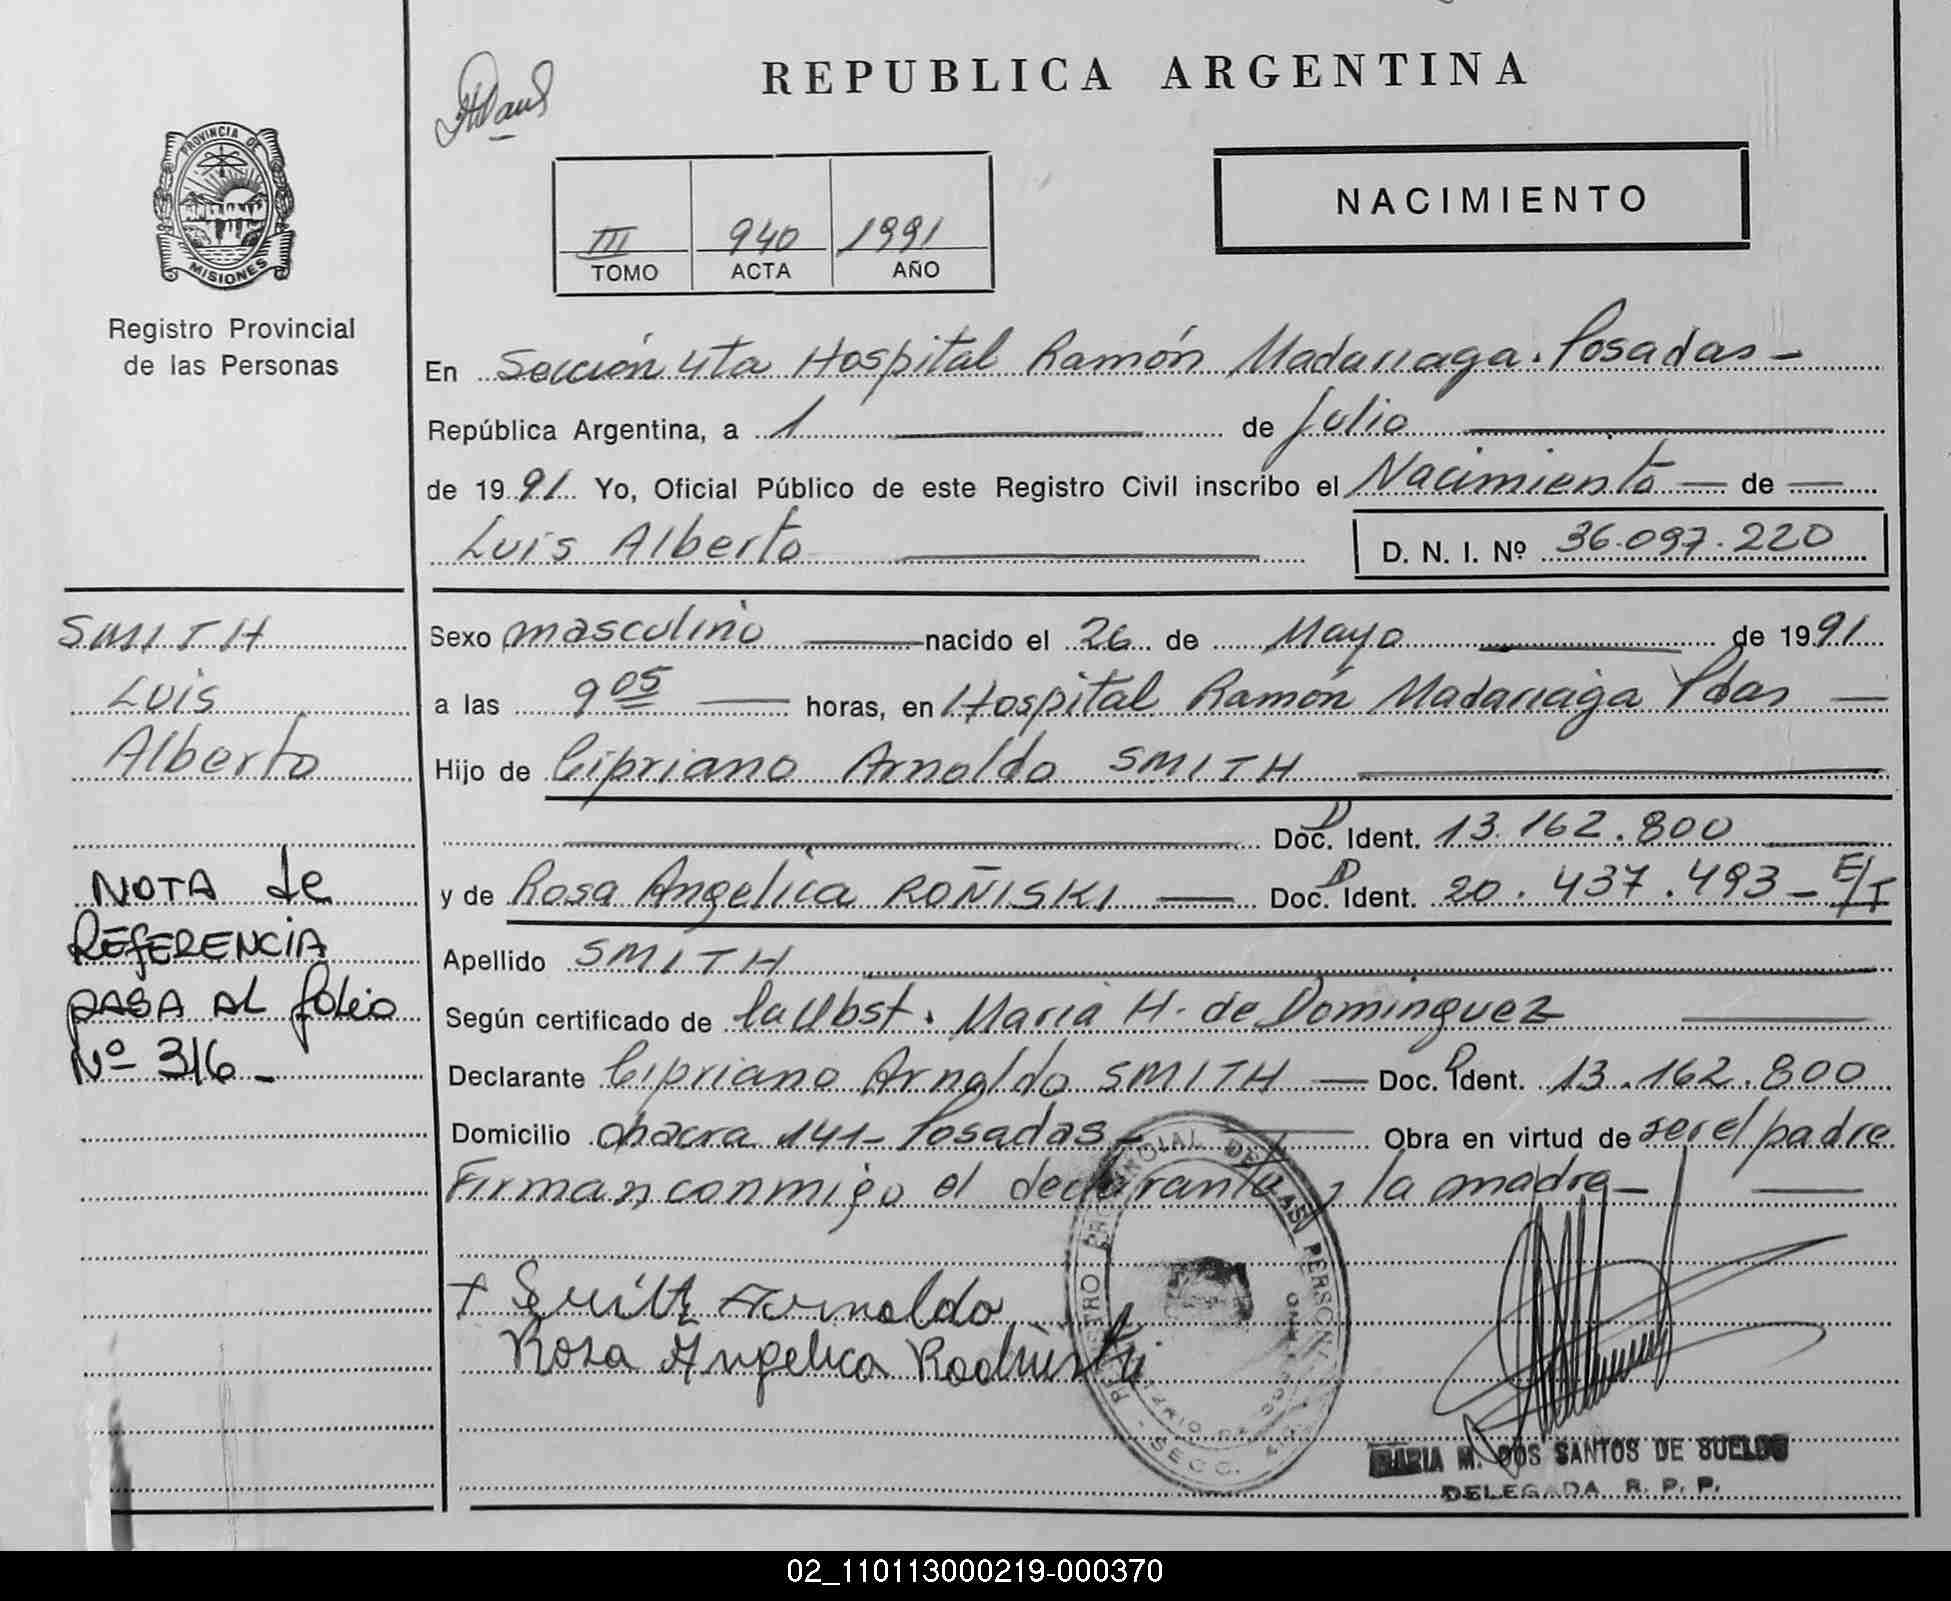 REPUBLICA ARGENTINA
PROVINCIA DE
MISIONES
Registro Provincial
de las Personas
III 940 1991
TOMO ACTA AÑO
NACIMIENTO
En Sección 4ta Hospital Ramón Madariaga. Posadas -
República Argentina, a 1 de Julio
de 1991 Yo, Oficial Público de este Registro Civil inscribo el Nacimiento de
Luis Alberto D. N. I. Nº 36.097.220
SMITH
Luis
Alberto
NOTA de
REFERENCIA
PASA AL folio
Nº 316-
Sexo masculino nacido el 26 de Mayo de 1991
a las 9 05 horas, en Hospital Ramón Madariaga Pdas
Hijo de Cipriano Arnoldo SMITH
Doc. Ident. 13.162.800
y de Rosa Angelica ROÑISKI Doc. Ident. 20.437.493 - E/T
Apellido SMITH
Según certificado de la Obst. Maria H. de Dominguez
Declarante Cipriano Arnoldo SMITH Doc. Ident. 13.162.800
Domicilio chacra 141- Posadas- Obra en virtud de ser el padre
Firman conmigo el declarante y la madre-
+ Smith Arnoldo
Rosa Angelica
MARIA M. DOS SANTOS DE SUELDO
DELEGADA R. P. P.
02_110113000219-000370